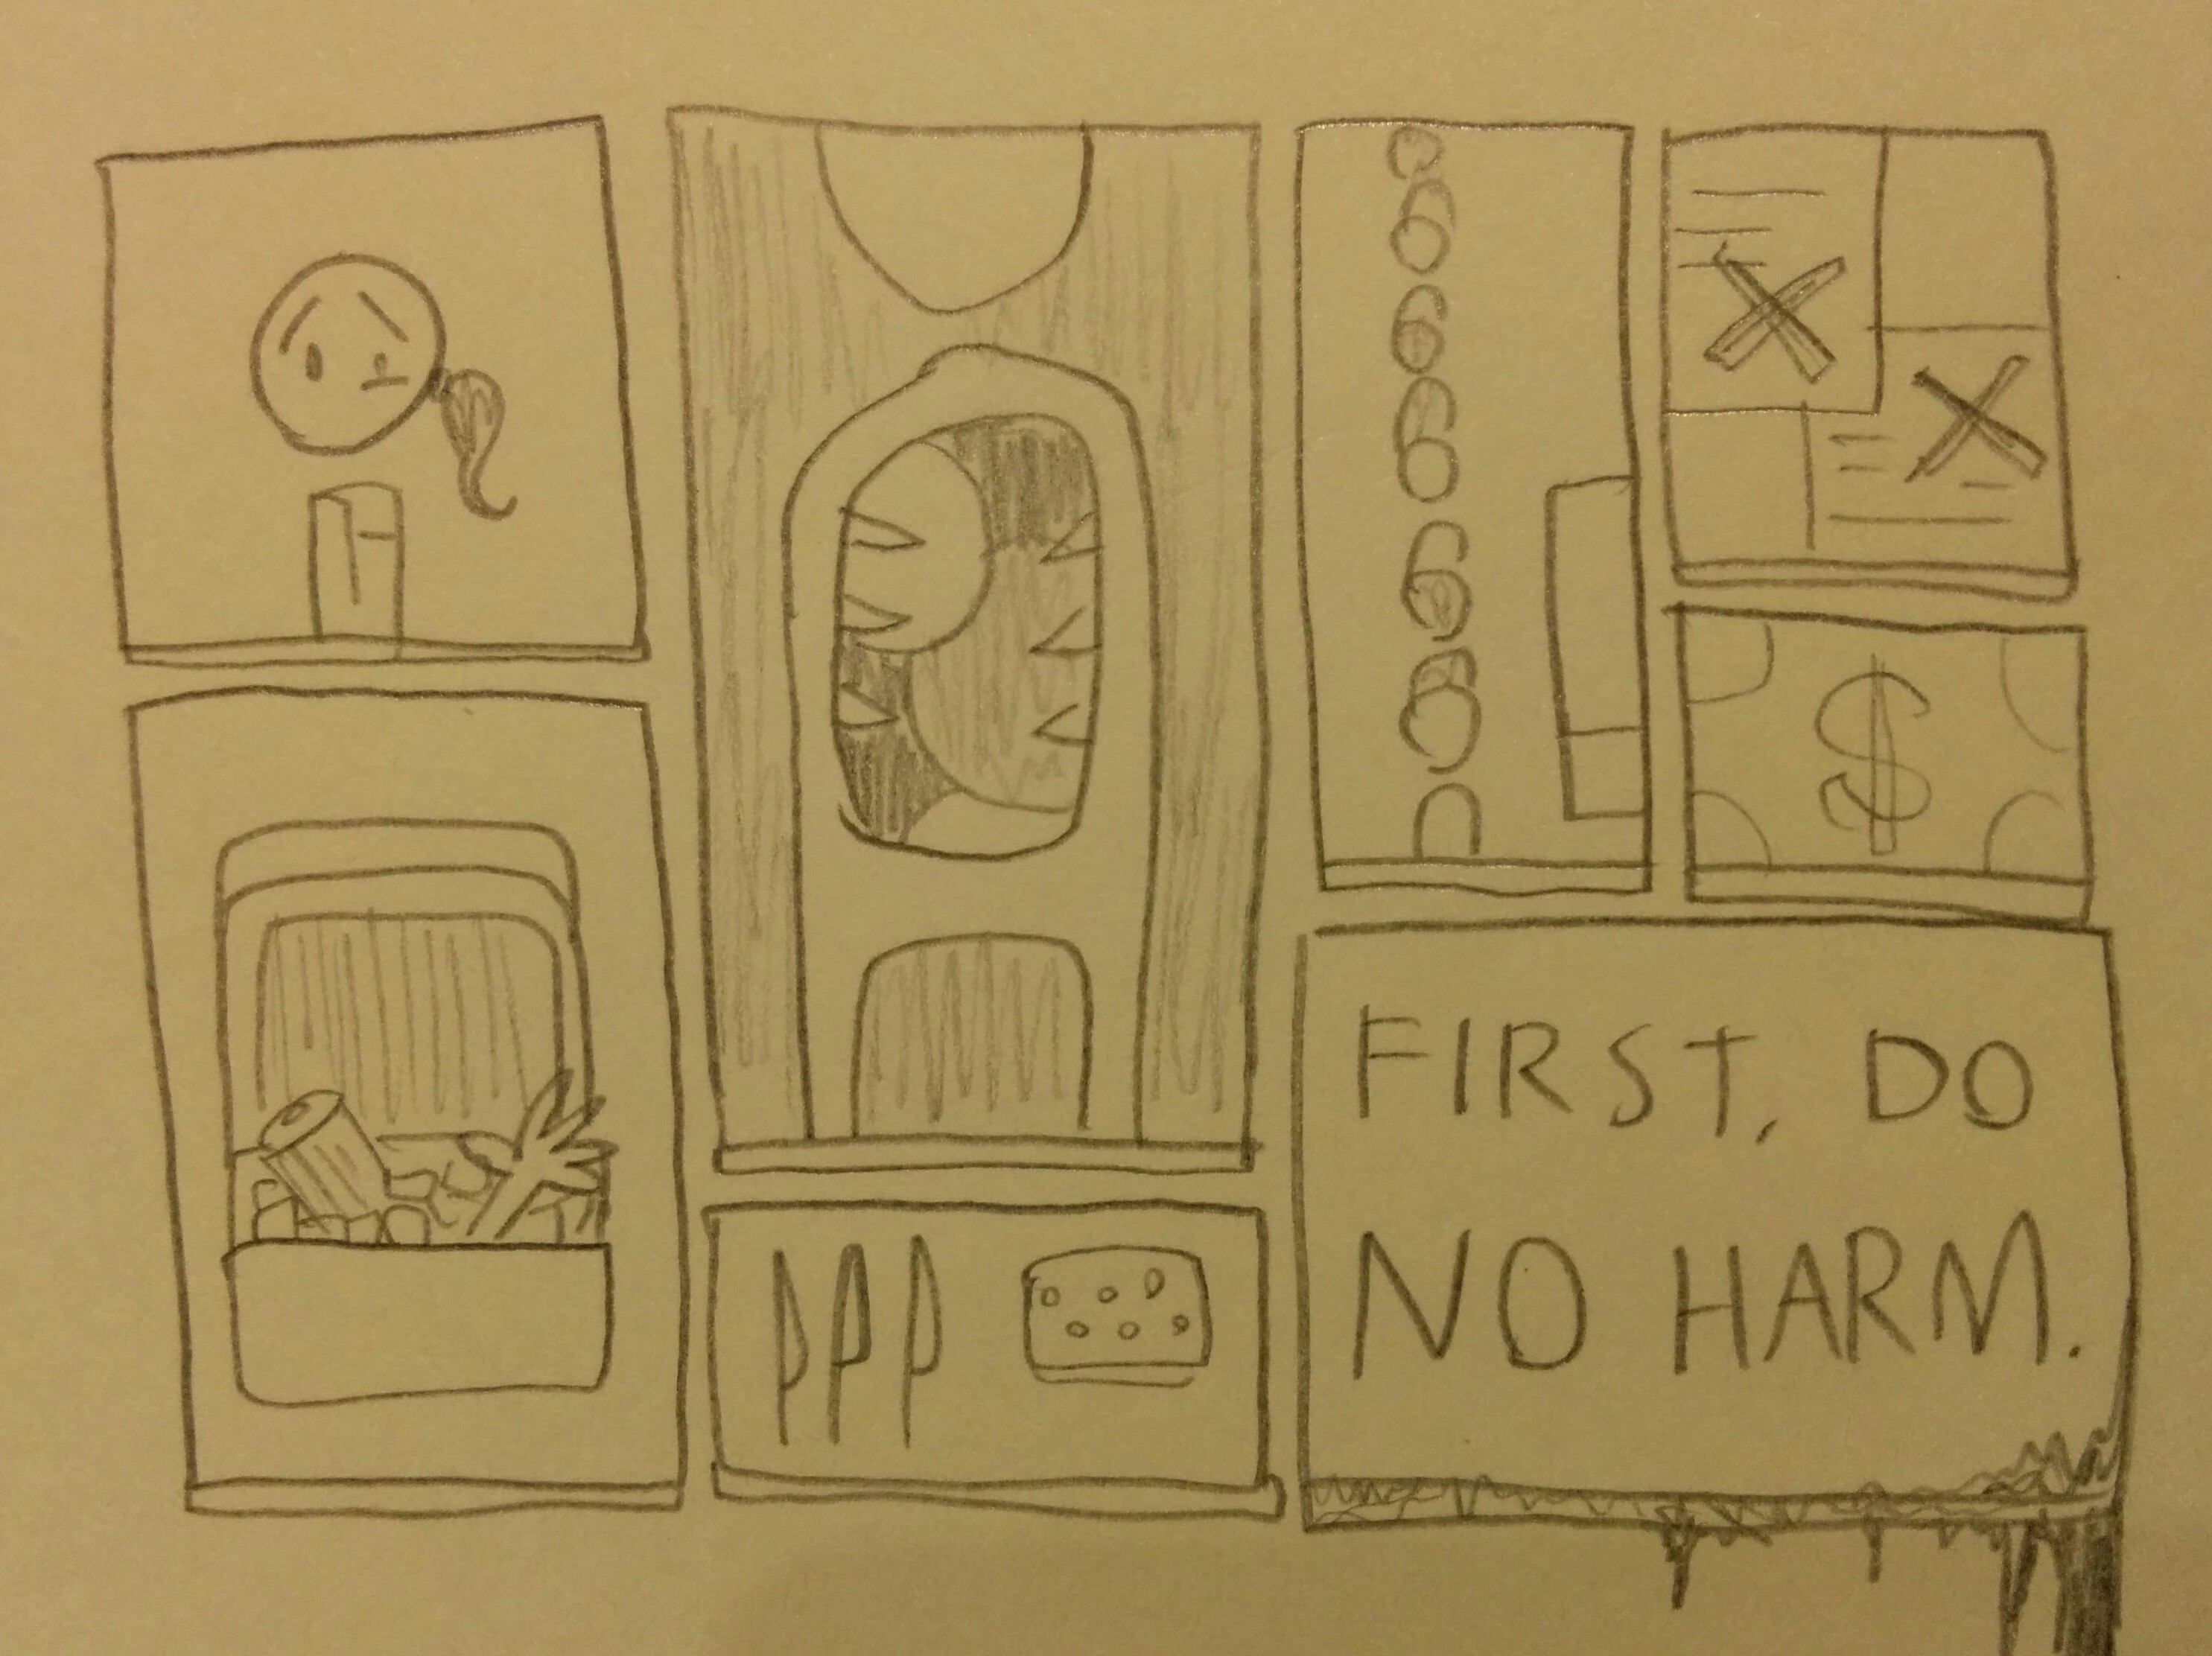 $
FIRST, DO
NO HARM.